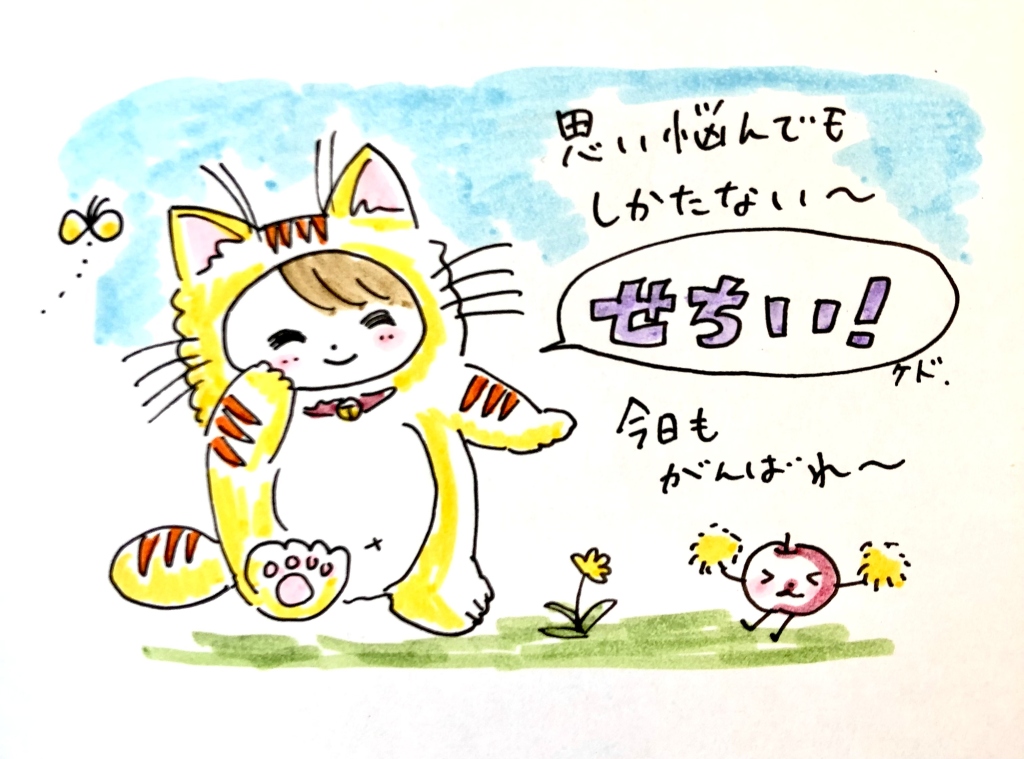 思い悩んでも
しかたない～
せちい!
ケド.
今日も
がんばれ～